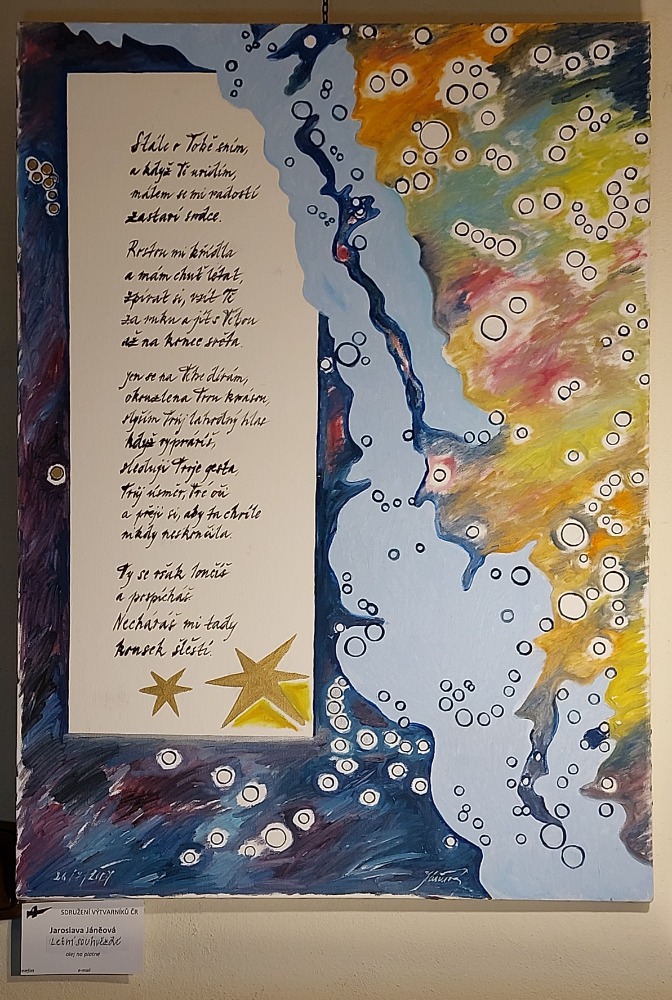 Stále o Tobě sním,
a když Tě uvidím,
málem se mi radostí
zastaví srdce.
Rostou mi křídla
a mám chuť létat,
zpívat si, vzít Tě
za ruku a jít s Tebou
až na konec světa.
Jen se na Tebe dívám,
okouzlena Tvou krásou,
slyším Tvůj lahodný hlas
když vyprávíš,
sleduji Tvoje gesta
Tvůj úsměv, Tvé oči
a přeji si, aby ta chvíle
nikdy neskončila.
Ty se však loučíš
a pospícháš.
Necháváš mi tady
kousek štěstí.
Jánëová
SDRUŽENÍ VÝTVARNÍKŮ ČR
Jaroslava Jáněová
Letní souhvězdí
olej na plátně
e-mail